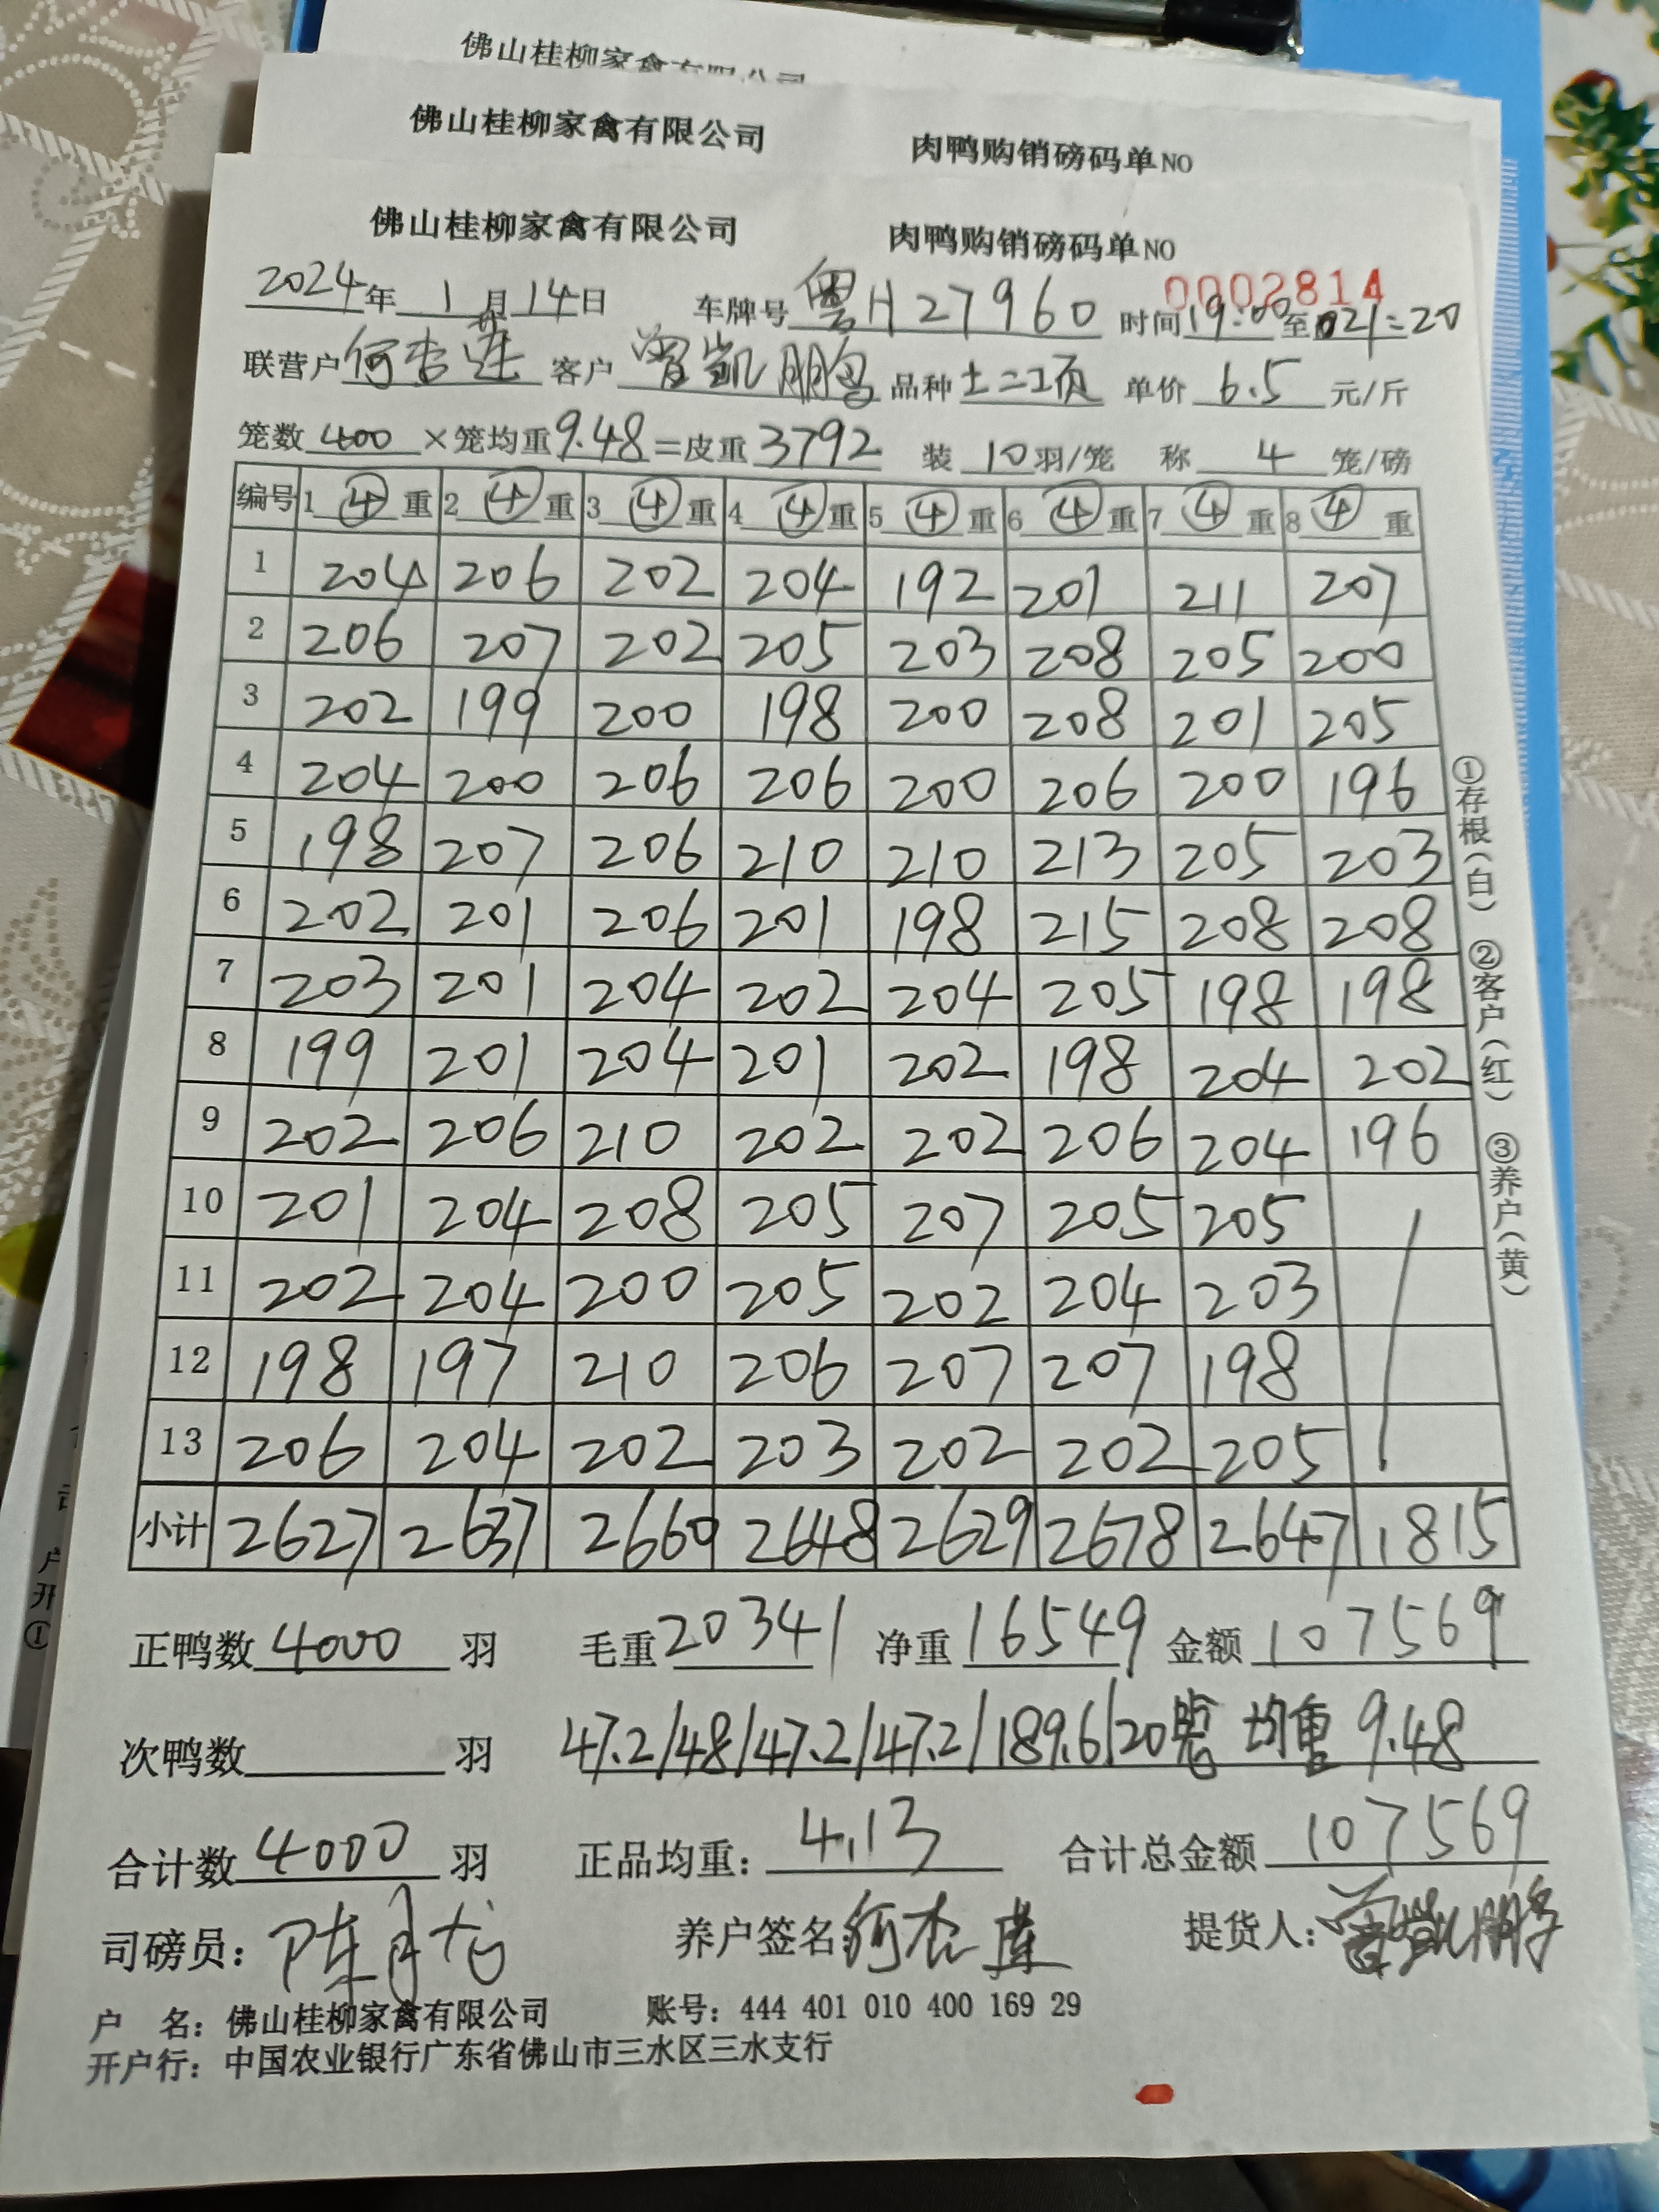 佛山桂柳家禽有限公司
佛山桂柳家禽有限公司 肉鸭购销磅码单NO
佛山桂柳家禽有限公司 肉鸭购销磅码单NO
0002814
2024年1月14日 车牌号粤H27960 时间19:00至021:20
联营户何杏莲 客户曾凯鹏 品种土二项 单价6.5元/斤
笼数400×笼均重9.48=皮重3792 装10羽/笼 称4笼/磅
编号 1④重 2④重 3④重 4④重 5④重 6④重 7④重 8④重
1 204 206 202 204 192 201 211 207
2 206 207 202 205 203 208 205 200
3 202 199 200 198 200 208 201 205
4 204 200 206 206 200 206 200 196
5 198 207 206 210 210 213 205 203
6 202 201 206 201 198 215 208 208
7 203 201 204 202 204 205 198 198
8 199 201 204 201 202 198 204 202
9 202 206 210 202 202 206 204 196
10 201 204 208 205 207 205 205
11 202 204 200 205 202 204 203
12 198 197 210 206 207 207 198
13 206 204 202 203 202 202 205
小计 2627 2637 2660 2648 2629 2678 2647 1815
①存根(白) ②客户(红) ③养户(黄)
正鸭数4000羽 毛重20341 净重16549 金额107569
次鸭数 羽 47.2/48/47.2/47.2/189.6/20笼 均重9.48
合计数4000羽 正品均重:4.13 合计总金额107569
司磅员:陈 养户签名何杏莲 提货人:曾凯鹏
户 名:佛山桂柳家禽有限公司 账号:444 401 010 400 169 29
开户行:中国农业银行广东省佛山市三水区三水支行